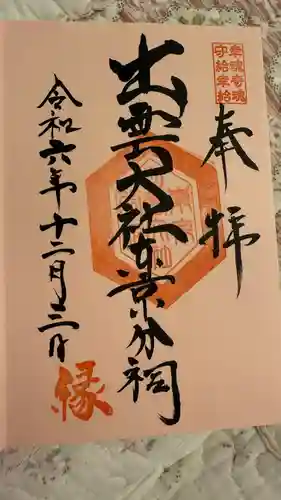 幸魂奇魂
守給幸給
奉拝
出雲大社東京分祠
令和六年十二月三日
縁